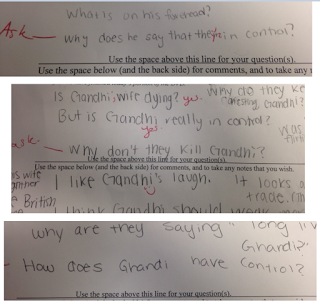 What is on his forehead?
Ask — why does he say that they're in control?
Use the space above this line for your question(s).
Use the space below (and the back side) for comments, and to take any
Is Gandhi's wife dying? yes. Why do they ke
arresting Gandhi?
But is Gandhi really in control?
yes.
was
ask. — Why don't they kill Gandhi?
Use the space above this line for your question(s).
Use the space below (and the back side) for comments, and to take any notes that you wish.
is wife
I like Gandhi's laugh. It looks a
trade.
e British
I think Gandhi should wear
why are they saying "long liv
Ghandi?"
- How does Ghandi have control?
Use the space above this line for your question(s).